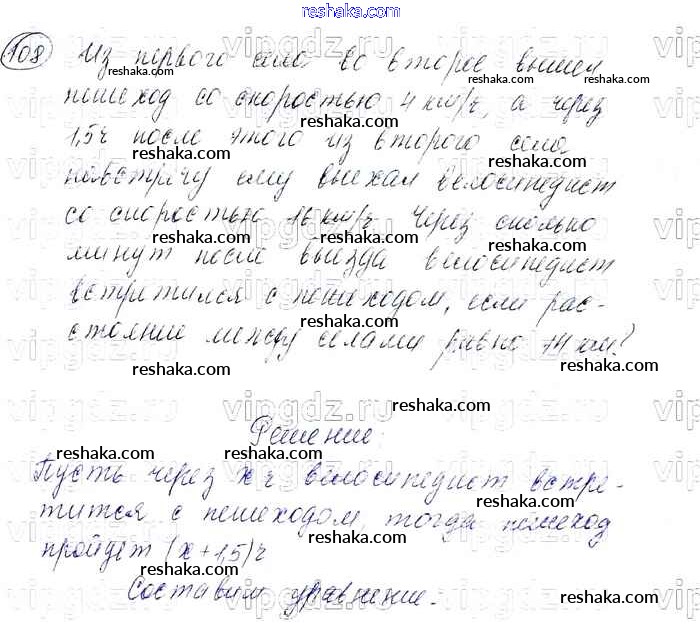 reshaka.com
108 Из первого села во второе вышел
reshaka.com reshaka.com
пешеход со скоростью 4 км/ч, а через
reshaka.com
1,5 ч после этого из второго села
reshaka.com reshaka.com
навстречу ему выехал велосипедист
reshaka.com
со скоростью 16 км/ч Через сколько
reshaka.com reshaka.com
минут после выезда велосипедист
reshaka.com
встретился с пешеходом, если рас-
reshaka.com reshaka.com
стояние между селами равно км?
reshaka.com
vipgdz.ru vipgdz.ru vipgdz.ru
reshaka.com
Решение:
reshaka.com reshaka.com
Пусть через х ч велосипедист встре-
reshaka.com
тится с пешеходом, тогда пешеход
reshaka.com reshaka.com
пройдет (х+1,5) ч
reshaka.com reshaka.com
Составим уравнение:
reshaka.com